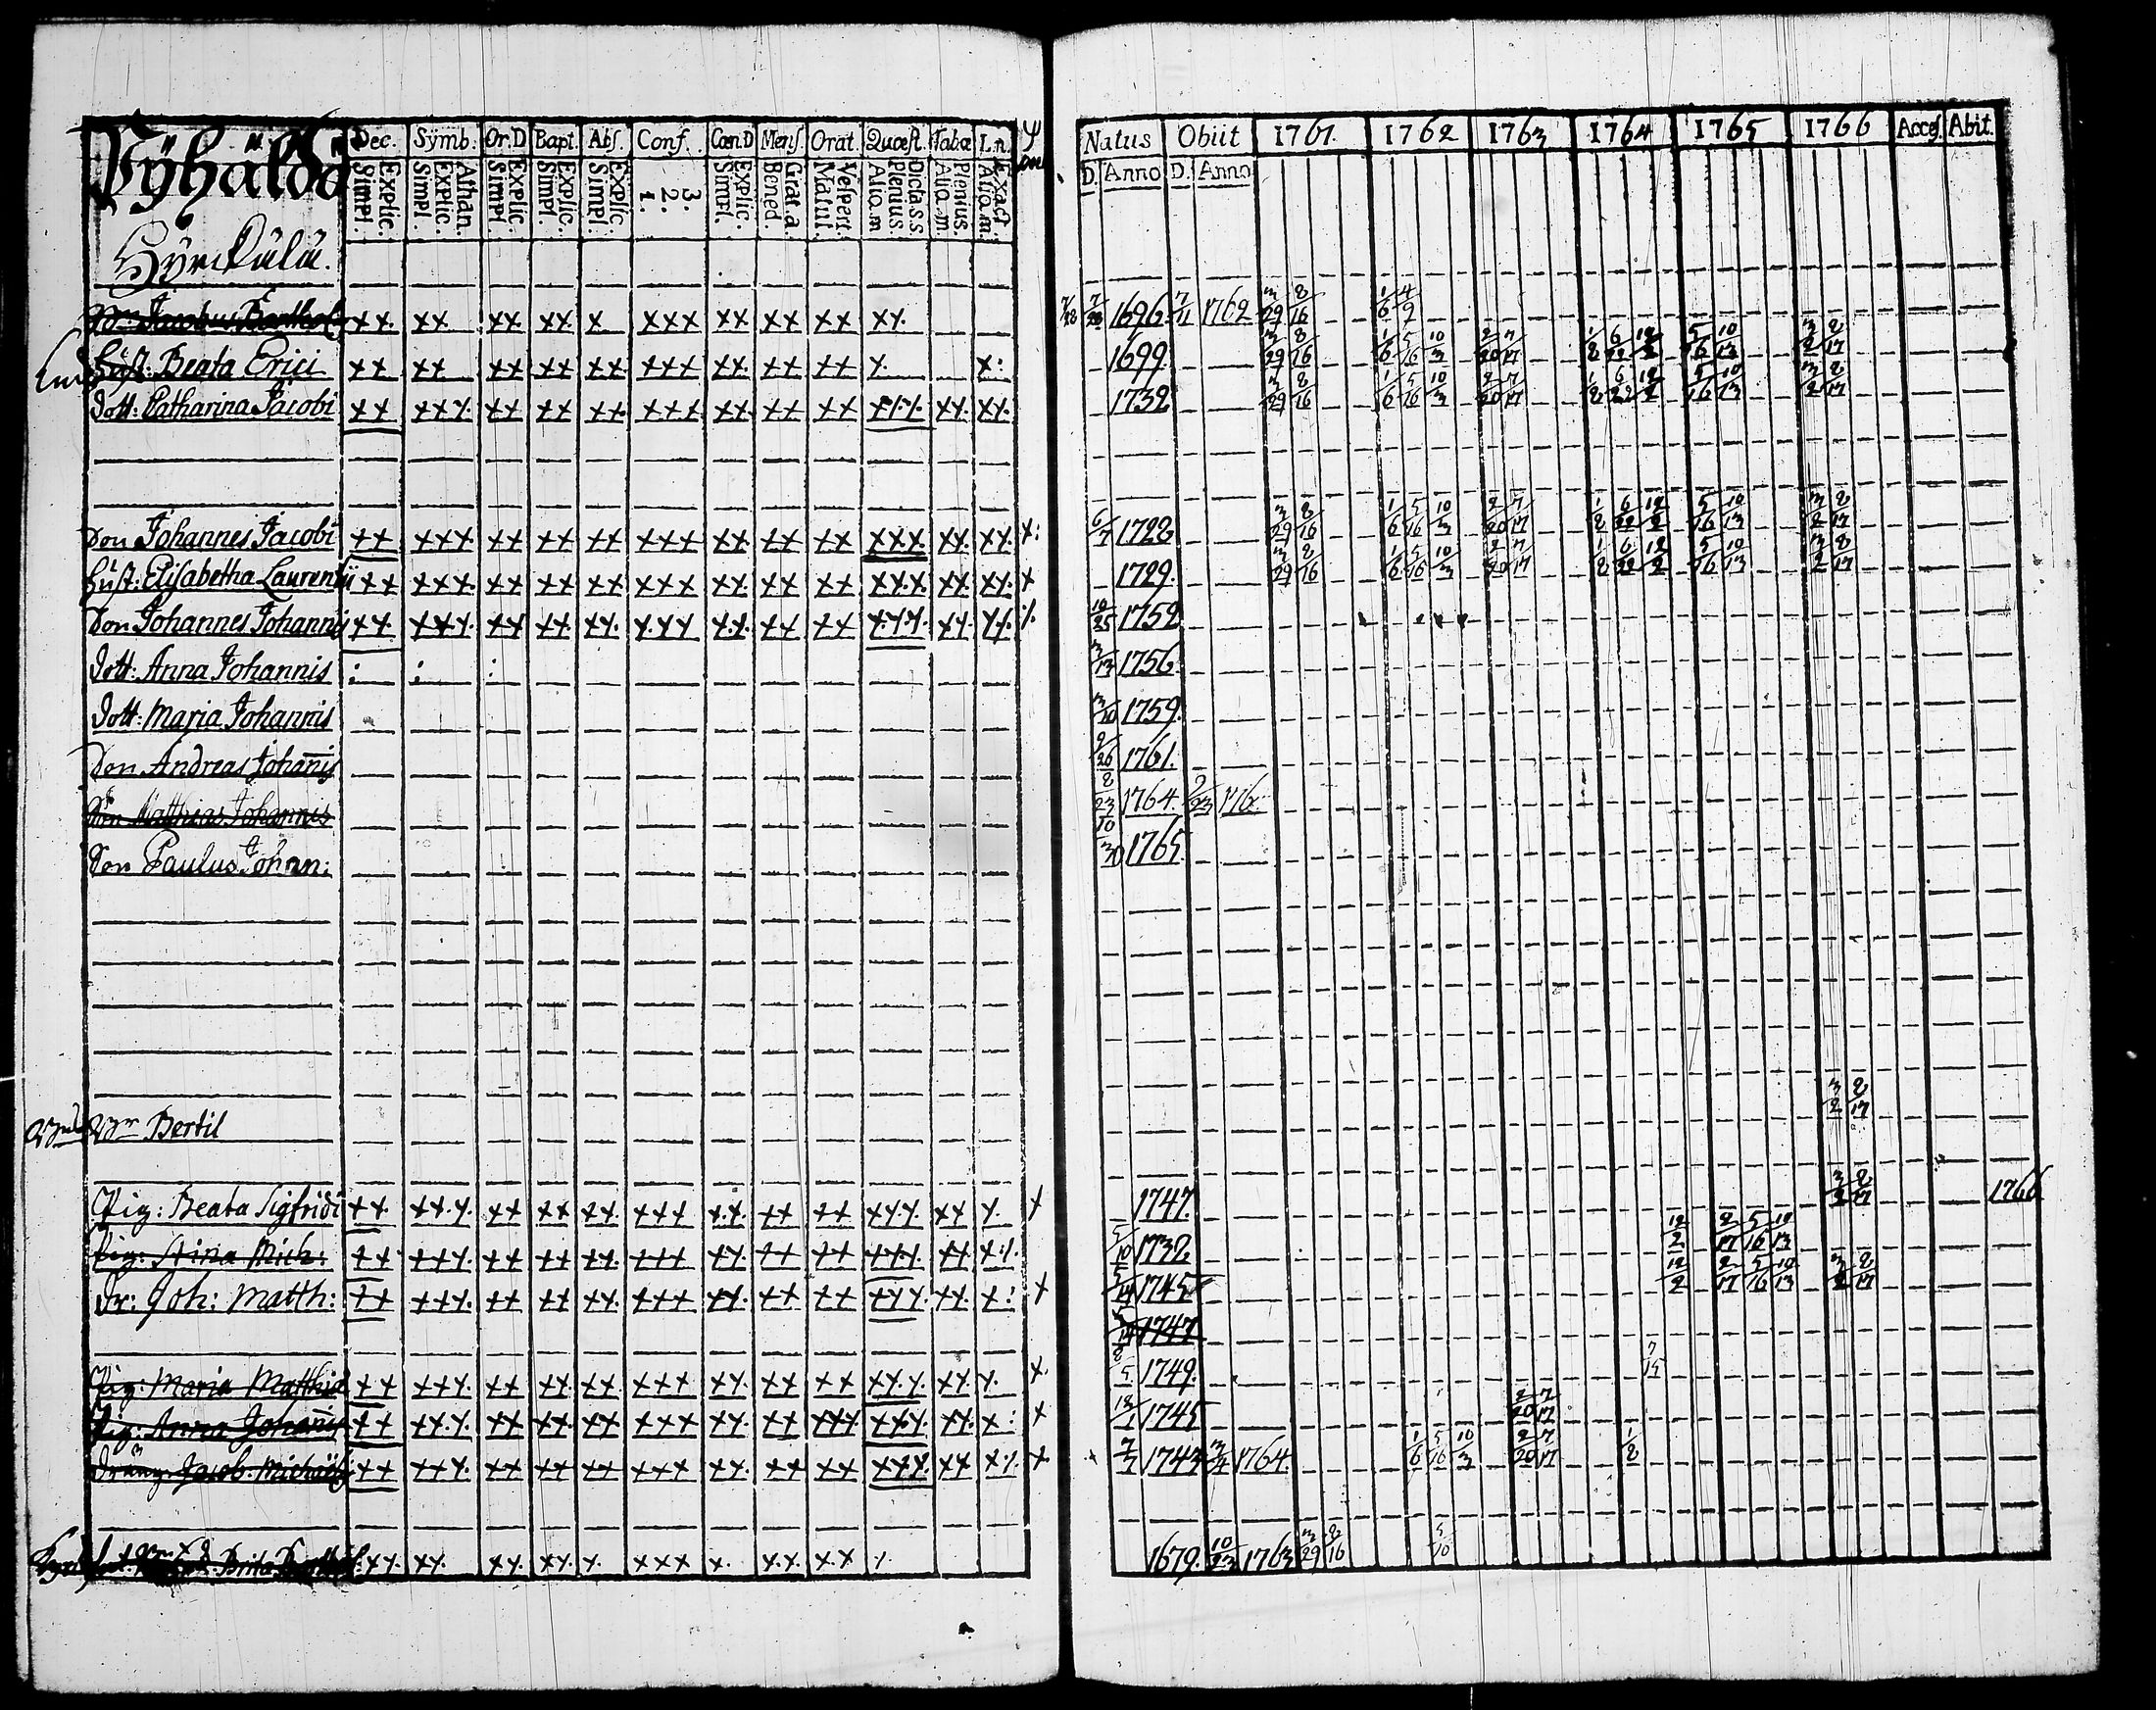 Pÿhäldö
Hÿrckülü.
Dec. Sÿmb: Or.D Bapt. Abſ. Conf. Cœn.D Menſ. Orat. Quœſt. Tabœ L.n.
Explic. Simpl. Athan. Explic. Simpl. Explic. Simpl. Explic. Simpl. Explic. Simpl. 3. 2. 1. Explic. Simpl. Grat.a. Bened. Veſpert. Matut. Dicta.s.s. Plenius. Aliq.m Plenius. Aliq.m Exact. Aliq.m.
Jacobus Barthol: xx. xx xx xx x xxx xx xx xx xx.
Huſt: Beata Erici xx xx xx xx xx xxx xx. xx xx x. x:
Dott: Catharina Jacobi xx xxx. xx xx xx. xxx xx. xx xx xxx. xx. xx.
Son Johannes Jacobi xx xxx xx xx xx xxx xx. xx xx xxx xx. xx. x:
Huſt: Elisabetha Laurentii xx xxx. xx xx xx xxx xx. xx xx xx.x. xx xx. x
Son Johannes Johannis xx xxx. xx xx. xx. x.xx x.x. xx xx x.xx. xx. xx.
Dott: Anna Johannis : : :
Dott: Maria Johannis
Son Andreas Johanis
Son Matthias Johannis
Son Paulus Johan:
Bertil
Pig: Beata Sigfridi xx xx.x. xx xx xx. xxx x.x. xx xx xxx xx x. x
Pig: Stina Mich: xx xxx. xx xx xx. xxx xx. xx xx xxx. xx. x:
Dr: Joh: Matth: xx xxx. xx xx xx. xxx xx. xx xx xxx. xx. x: x
Pig: Maria Matthiæ xx xxx. xx xx xx xxx xx. xx xx xx.x. xx x. x
Pig: Anna Johanis xx xx.x. xx xx. xx xxx xx. xx xxx xxx. xx. x: x
Dräng. Jacob. Michael xx xxx. xx xx xx xxx xx. xx xx xxx. xx x: x
Brita xx. xx. xx. xx. x. xxx x. x.x. x.x x.
Natus Obiit 1761. 1762 1763 1764 1765 1766 Acceſ. Abit.
D. Anno D. Anno
1696 7/11 1762 3/29 8/16 1/6 4/9
1699. 3/29 8/16 1/6 5/16 10/3 2/20 7/17 1/8 6/22 12/2 5/16 10/13 3/2 8/17
1732 3/29 8/16 1/6 5/16 10/3 2/20 7/17 1/8 6/22 12/2 5/16 10/13 3/2 8/17
6/7 1728 3/29 8/16 1/6 5/16 10/3 2/20 7/17 1/8 6/22 12/2 5/16 10/13 3/2 8/17
1729. 3/29 8/16 1/6 5/16 10/3 2/20 7/17 1/8 6/22 12/2 5/16 10/13 3/2 8/17
10/25 1752
3/13 1756.
3/20 1759.
9/26 1761.
8/23 1764. 9/23 176
10/30 1765.
3/2 8/17
1747. 3/2 8/17 1766
5/10 1732 12/2 2/17 5/16 10/13
1745 12/2 2/17 5/16 10/13 3/2 8/17
1747
8/5 1749. 7/15
1745 2/20 7/17
7/7 1743 3/4 1764. 1/6 5/16 10/3 2/20 7/17 1/8
1679. 10/23 1763 3/29 8/16 5/10